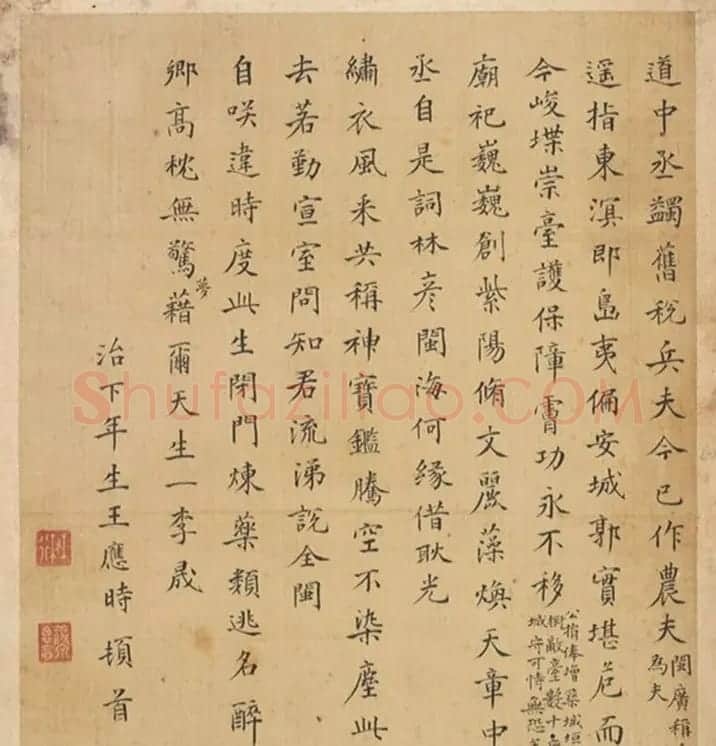 道中丞蠲舊稅兵夫今已作農夫閩廣稱
為夫
遥指東溟即島夷偏安城郭實堪危而
今峻堞崇臺護保障膚功永不移公捐俸增築城垣
敵臺數十
城守可恃無恐
廟祀巍巍創紫陽脩文麗藻煥天章中
丞自是詞林彦閩海何緣借耿光
繡衣風采共稱神寶鑑騰空不染塵此
去若勤宣室問知君流涕說全閩
自咲違時度此生閉門煉藥類逃名醉
鄉高枕無驚夢藉爾天生一李晟
治下年生王應時頓首
Shufaziliao.COM